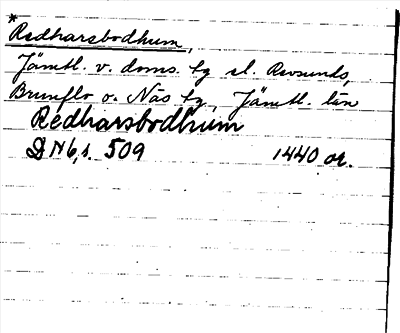 *
Redharsbodhum,
Jämtl. v. doms. tg el. Revsunds,
Brunflo o. Näs tg, Jämtl. län
Redharsbodhum
DN 6, s. 509 1440 or.